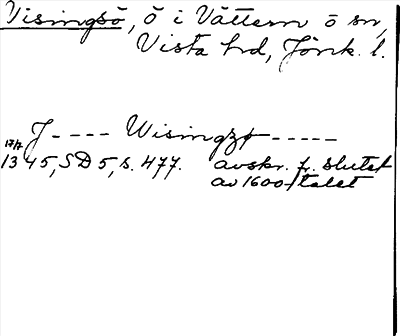 Visingsö, ö i Vättern ö sn,
Vista hd, Jönk. l.
J - - - - Wisingzø - - - - -
17/7
1345, SD 5, s. 477. avskr. fr. slutet
av 1600-talet